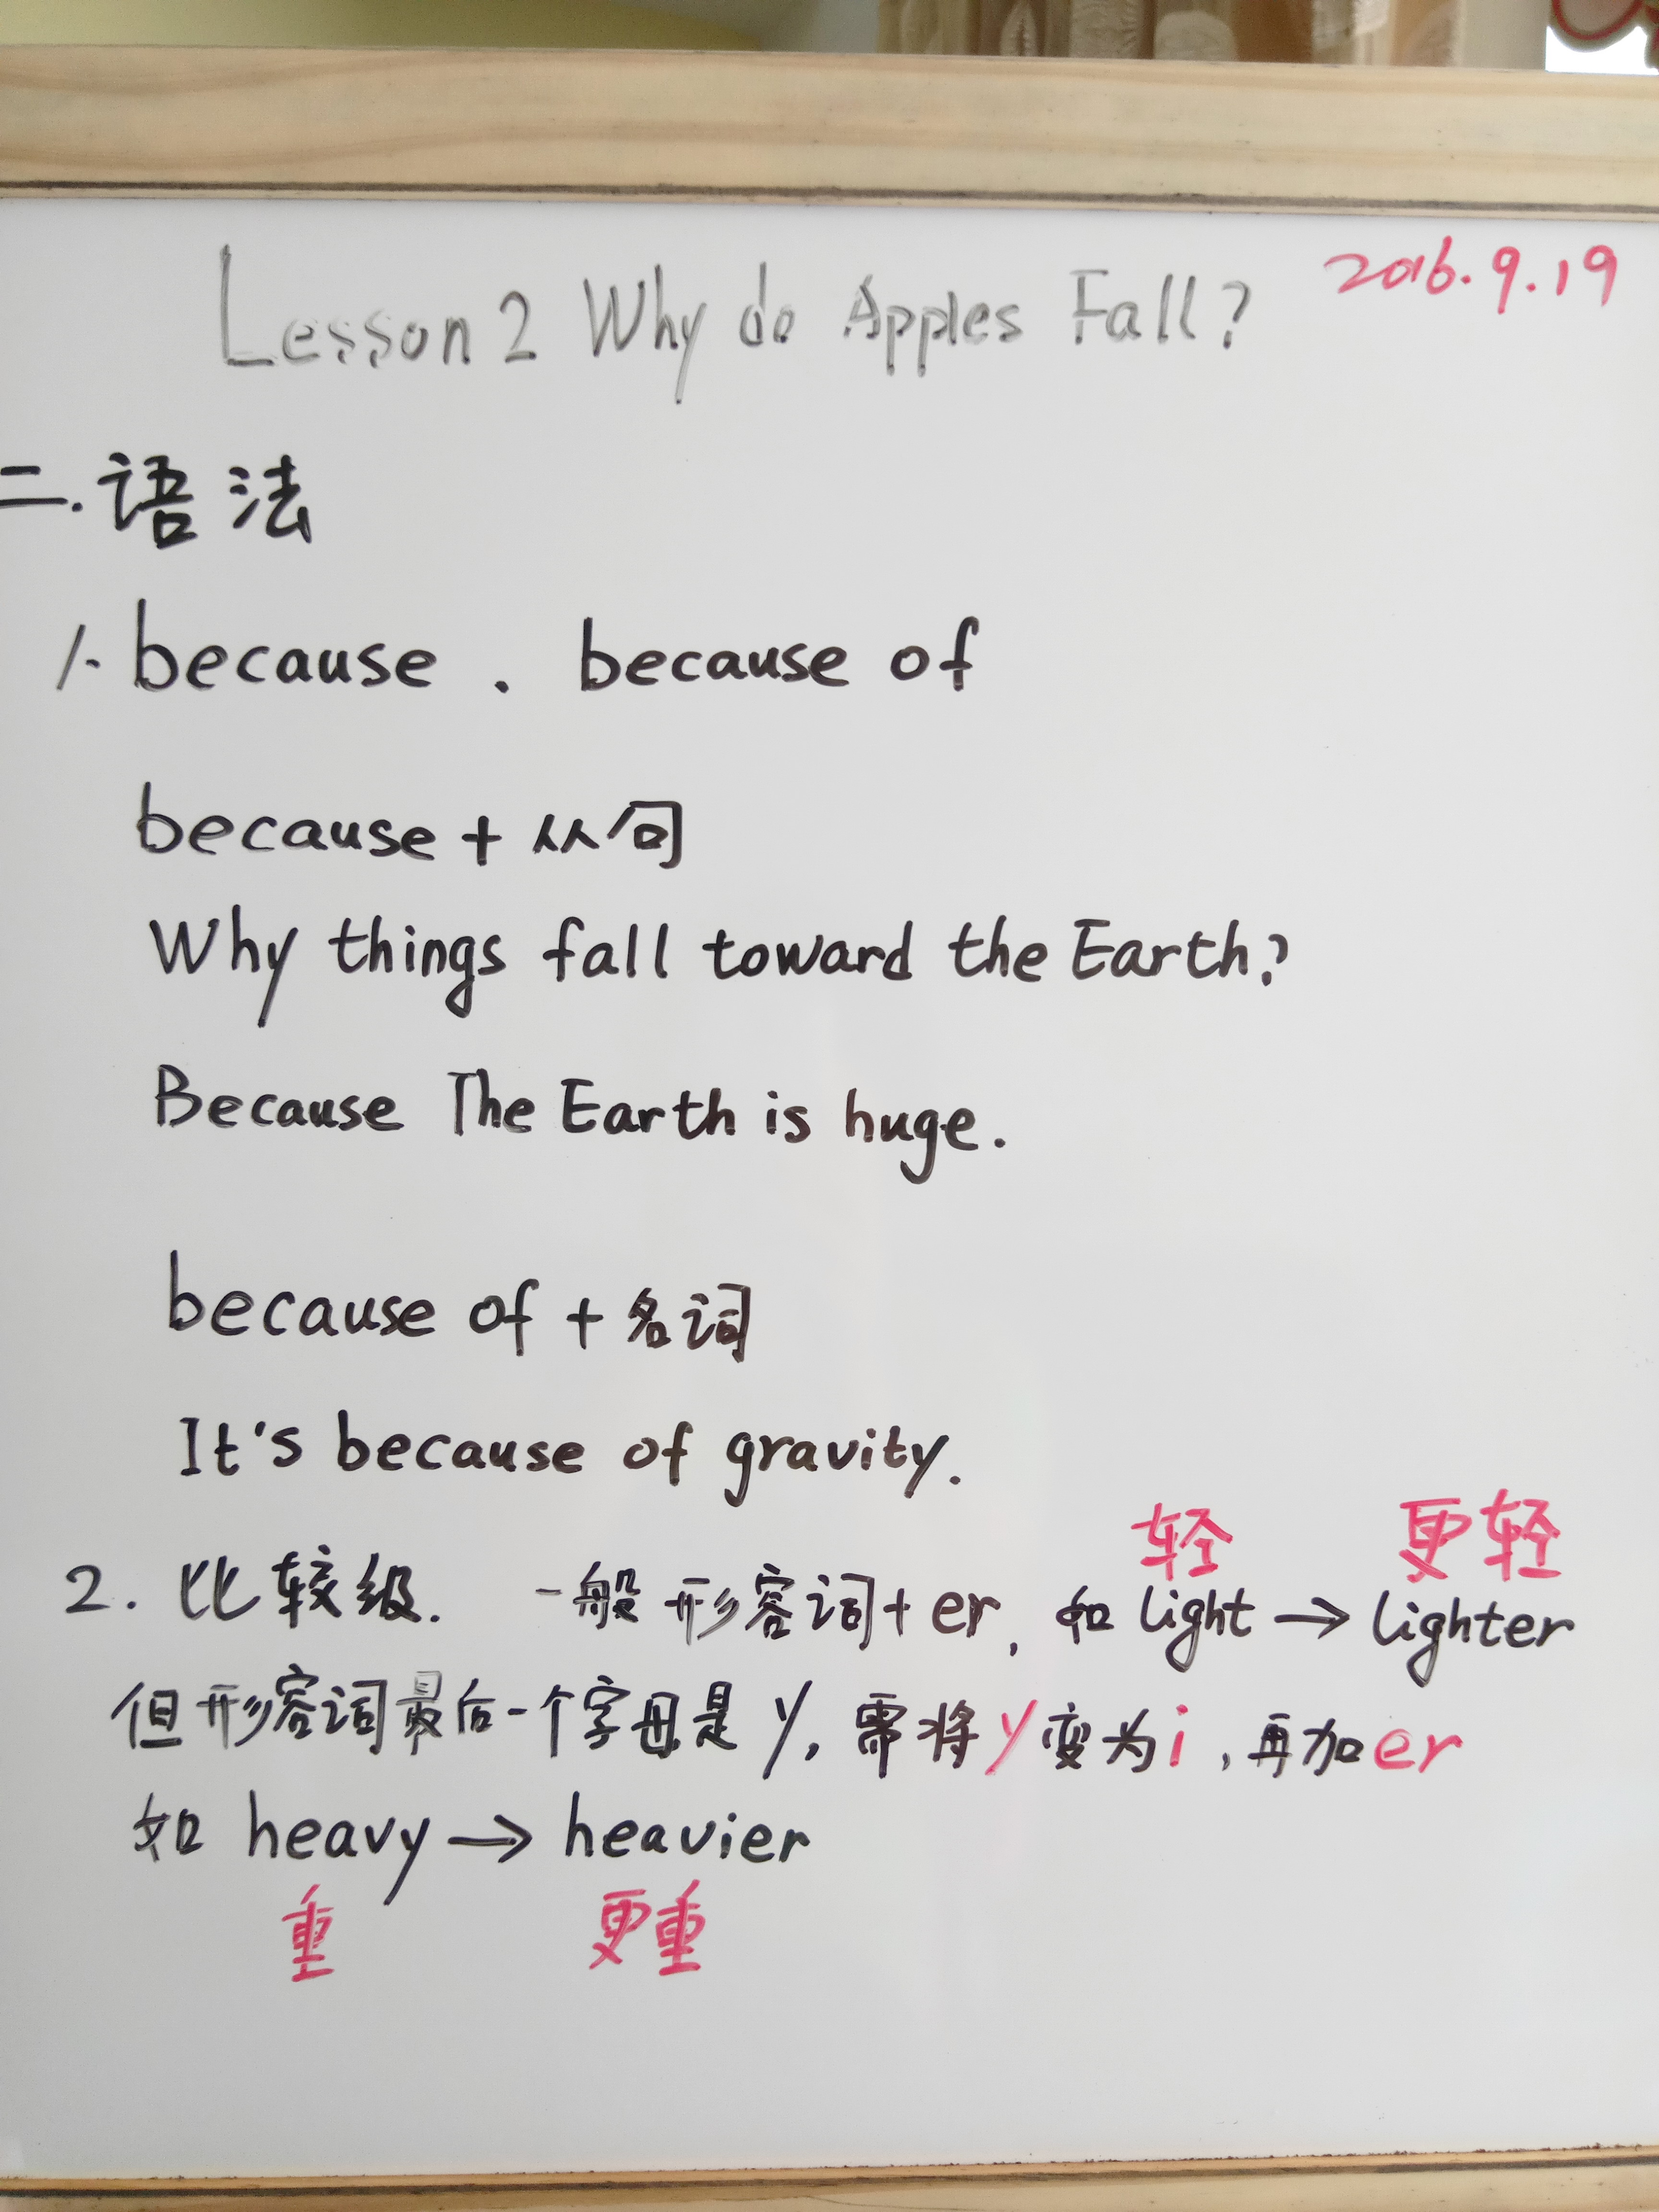 Lesson 2 Why do Apples Fall? 2016.9.19
二.语法
1. because . because of
because + 从句
Why things fall toward the Earth?
Because The Earth is huge.
because of + 名词
It's because of gravity.
轻 更轻
2. 比较级. 一般形容词+er, 如 light → lighter
但形容词最后一个字母是y, 需将y变为i, 再加er
如 heavy → heavier
重 更重